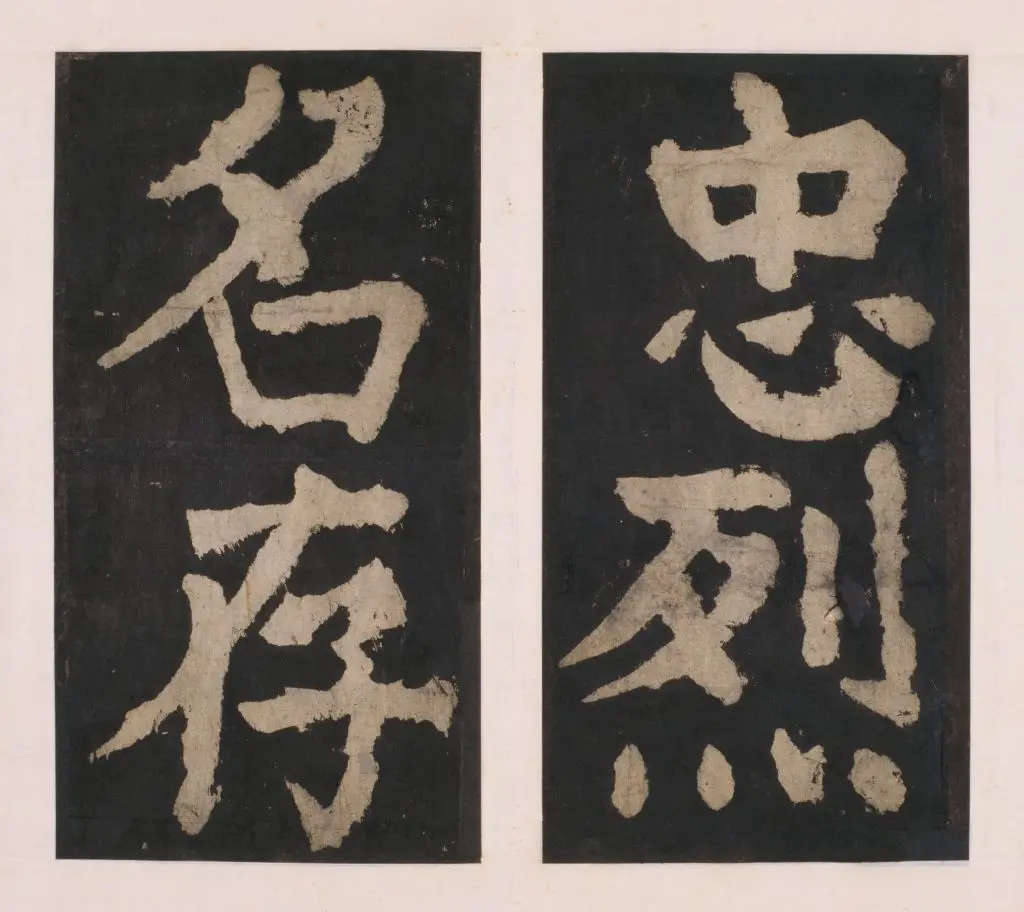 忠烈
名存